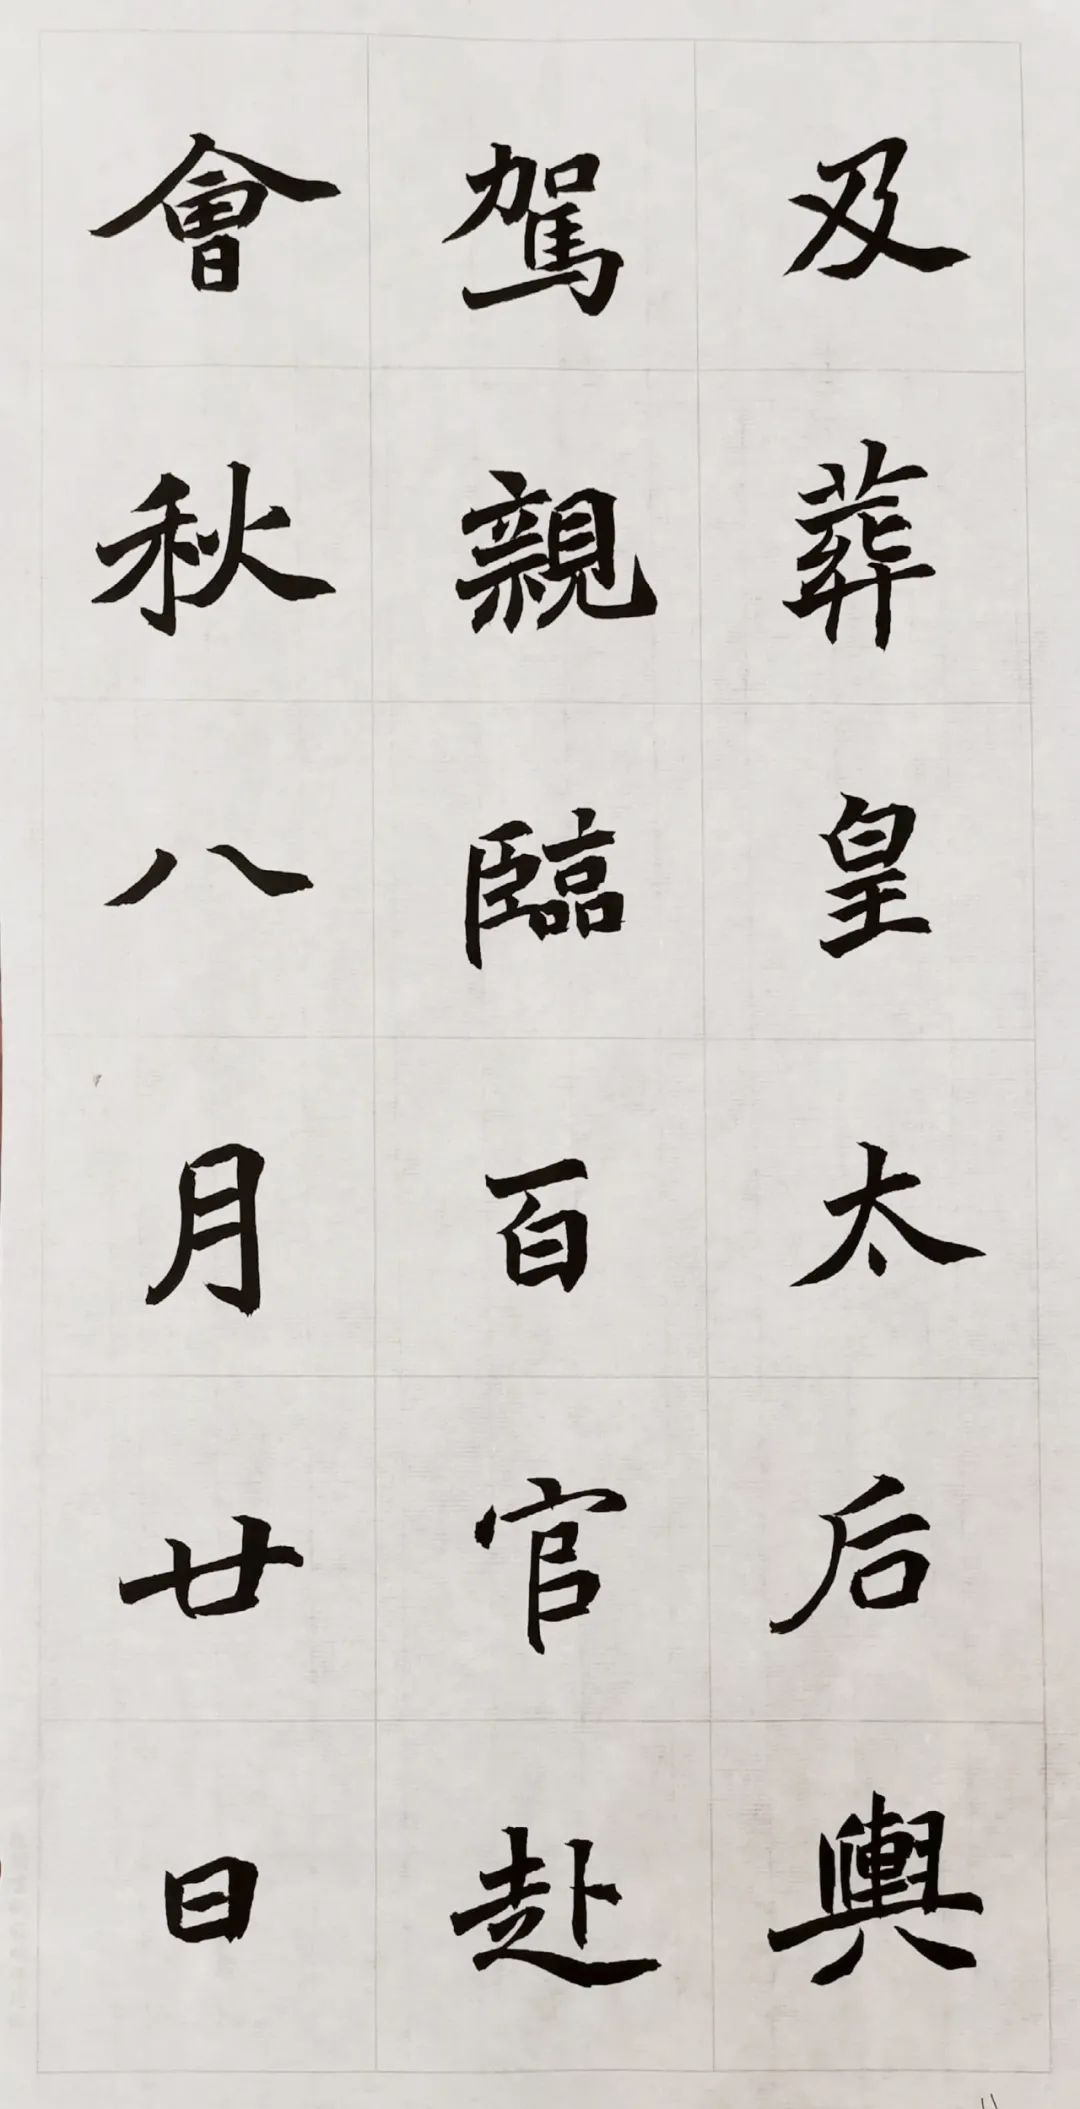 及葬皇太后輿
駕親臨百官赴
會秋八月廿日